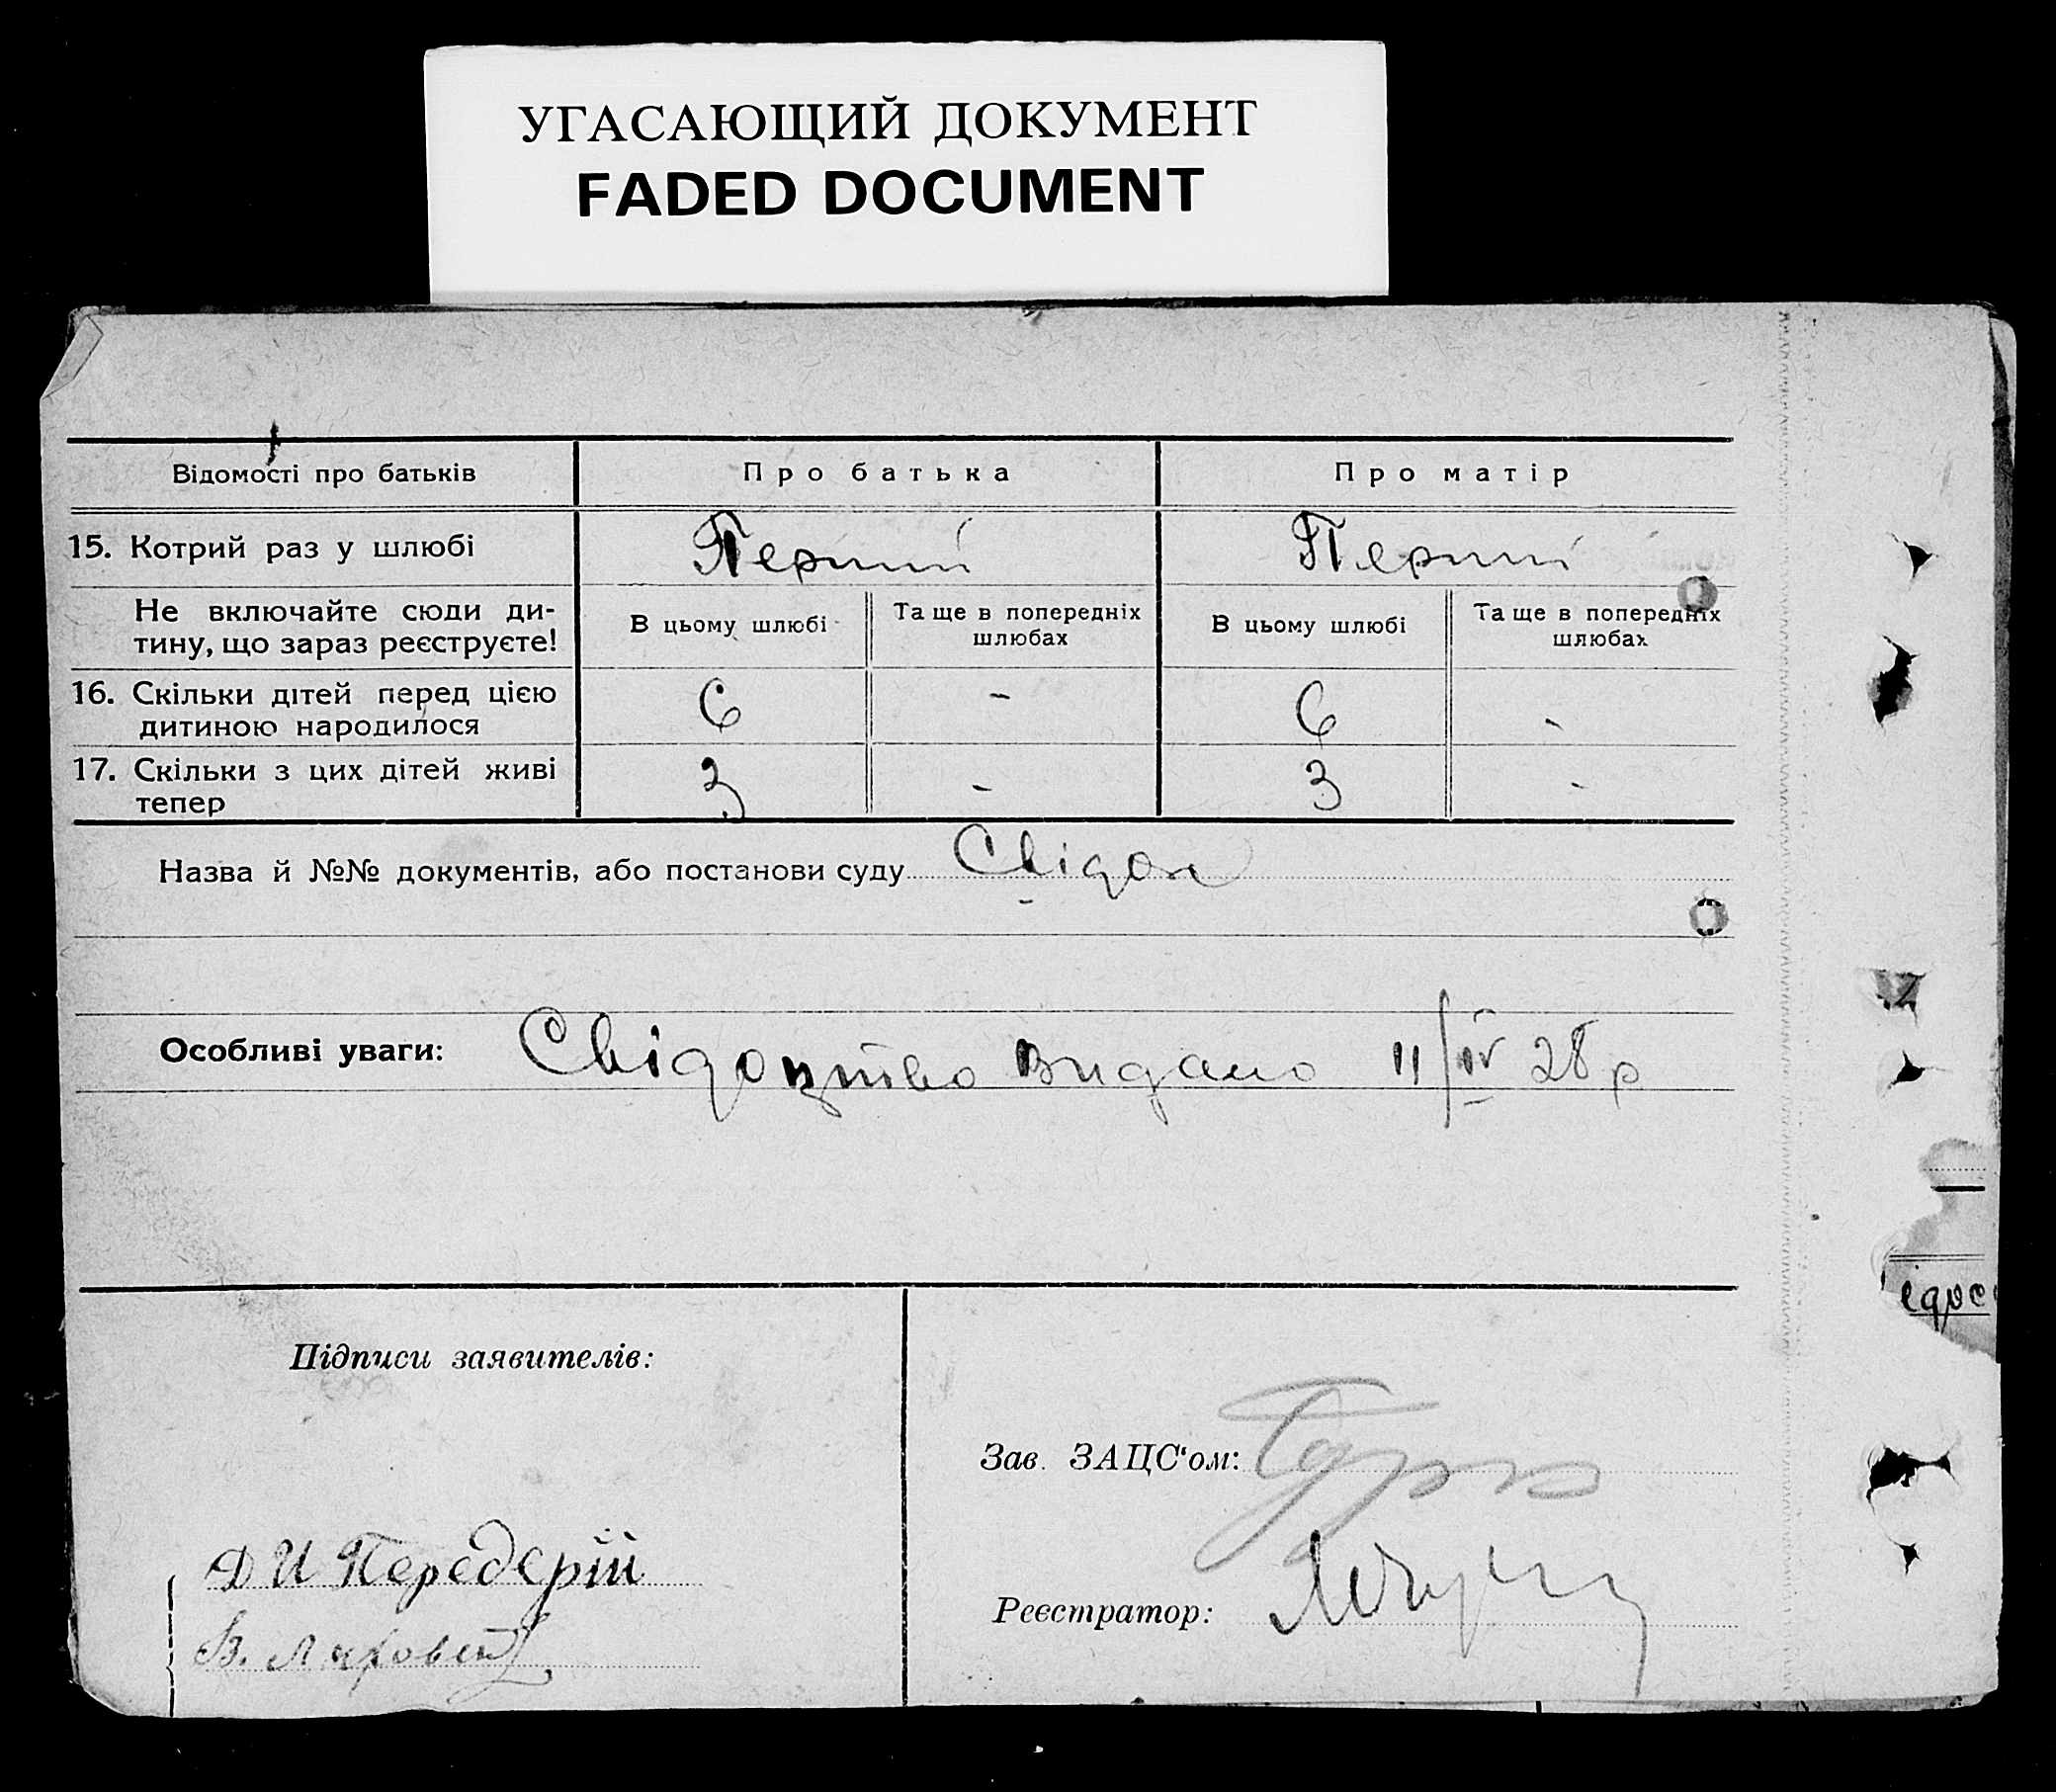 УГАСАЮЩИЙ ДОКУМЕНТ
FADED DOCUMENT
Відомості про батьків Про батька Про матір
15. Котрий раз у шлюбі Перший Перший
Не включайте сюди ди-
тину, що зараз реєструєте!
В цьому шлюбі Та ще в попередніх
шлюбах
В цьому шлюбі Та ще в попередніх
шлюбах
16. Скільки дітей перед цією
дитиною народилося 6 - 6 -
17. Скільки з цих дітей живі
тепер 3 - 3 -
Назва й №№ документів, або постанови суду
Особливі уваги: Свідоцтво видано 11/IV 28 р
Підписи заявителів:
Зав. ЗАЦС'ом:
Д И Передерій
Реєстратор:
В.